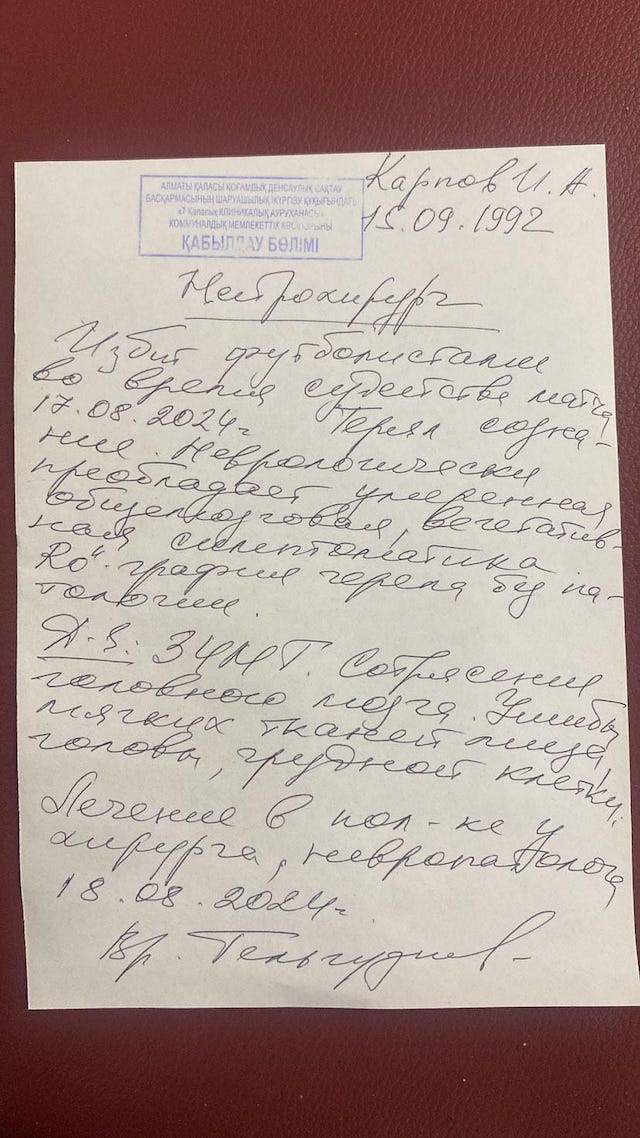 АЛМАТЫ ҚАЛАСЫ ҚОҒАМДЫҚ ДЕНСАУЛЫҚ САҚТАУ
БАСҚАРМАСЫНЫҢ ШАРУАШЫЛЫҚ ЖҮРГІЗУ ҚҰҚЫҒЫНДАҒЫ
«7 Қалалық КЛИНИКАЛЫҚ АУРУХАНАСЫ»
КОММУНАЛДЫҚ МЕМЛЕКЕТТІК КӘСІПОРНЫ
ҚАБЫЛДАУ БӨЛІМІ
Карпов И. А.
15.09.1992
Нейрохирург
Избит футболистами
во время судейства матча
17.08.2024г Терял созна-
ние. Неврологически
преобладает умеренная
общемозговая, вегетатив-
ная симптоматика
Ro"-графия черепа без па-
тологии.
Д-з: ЗЧМТ. Сотрясение
головного мозга. Ушибы
мягких тканей лица,
головы, грудной клетки.
Лечение в пол-ке у
хирурга, невропатолога
18.08.2024г
Вр.